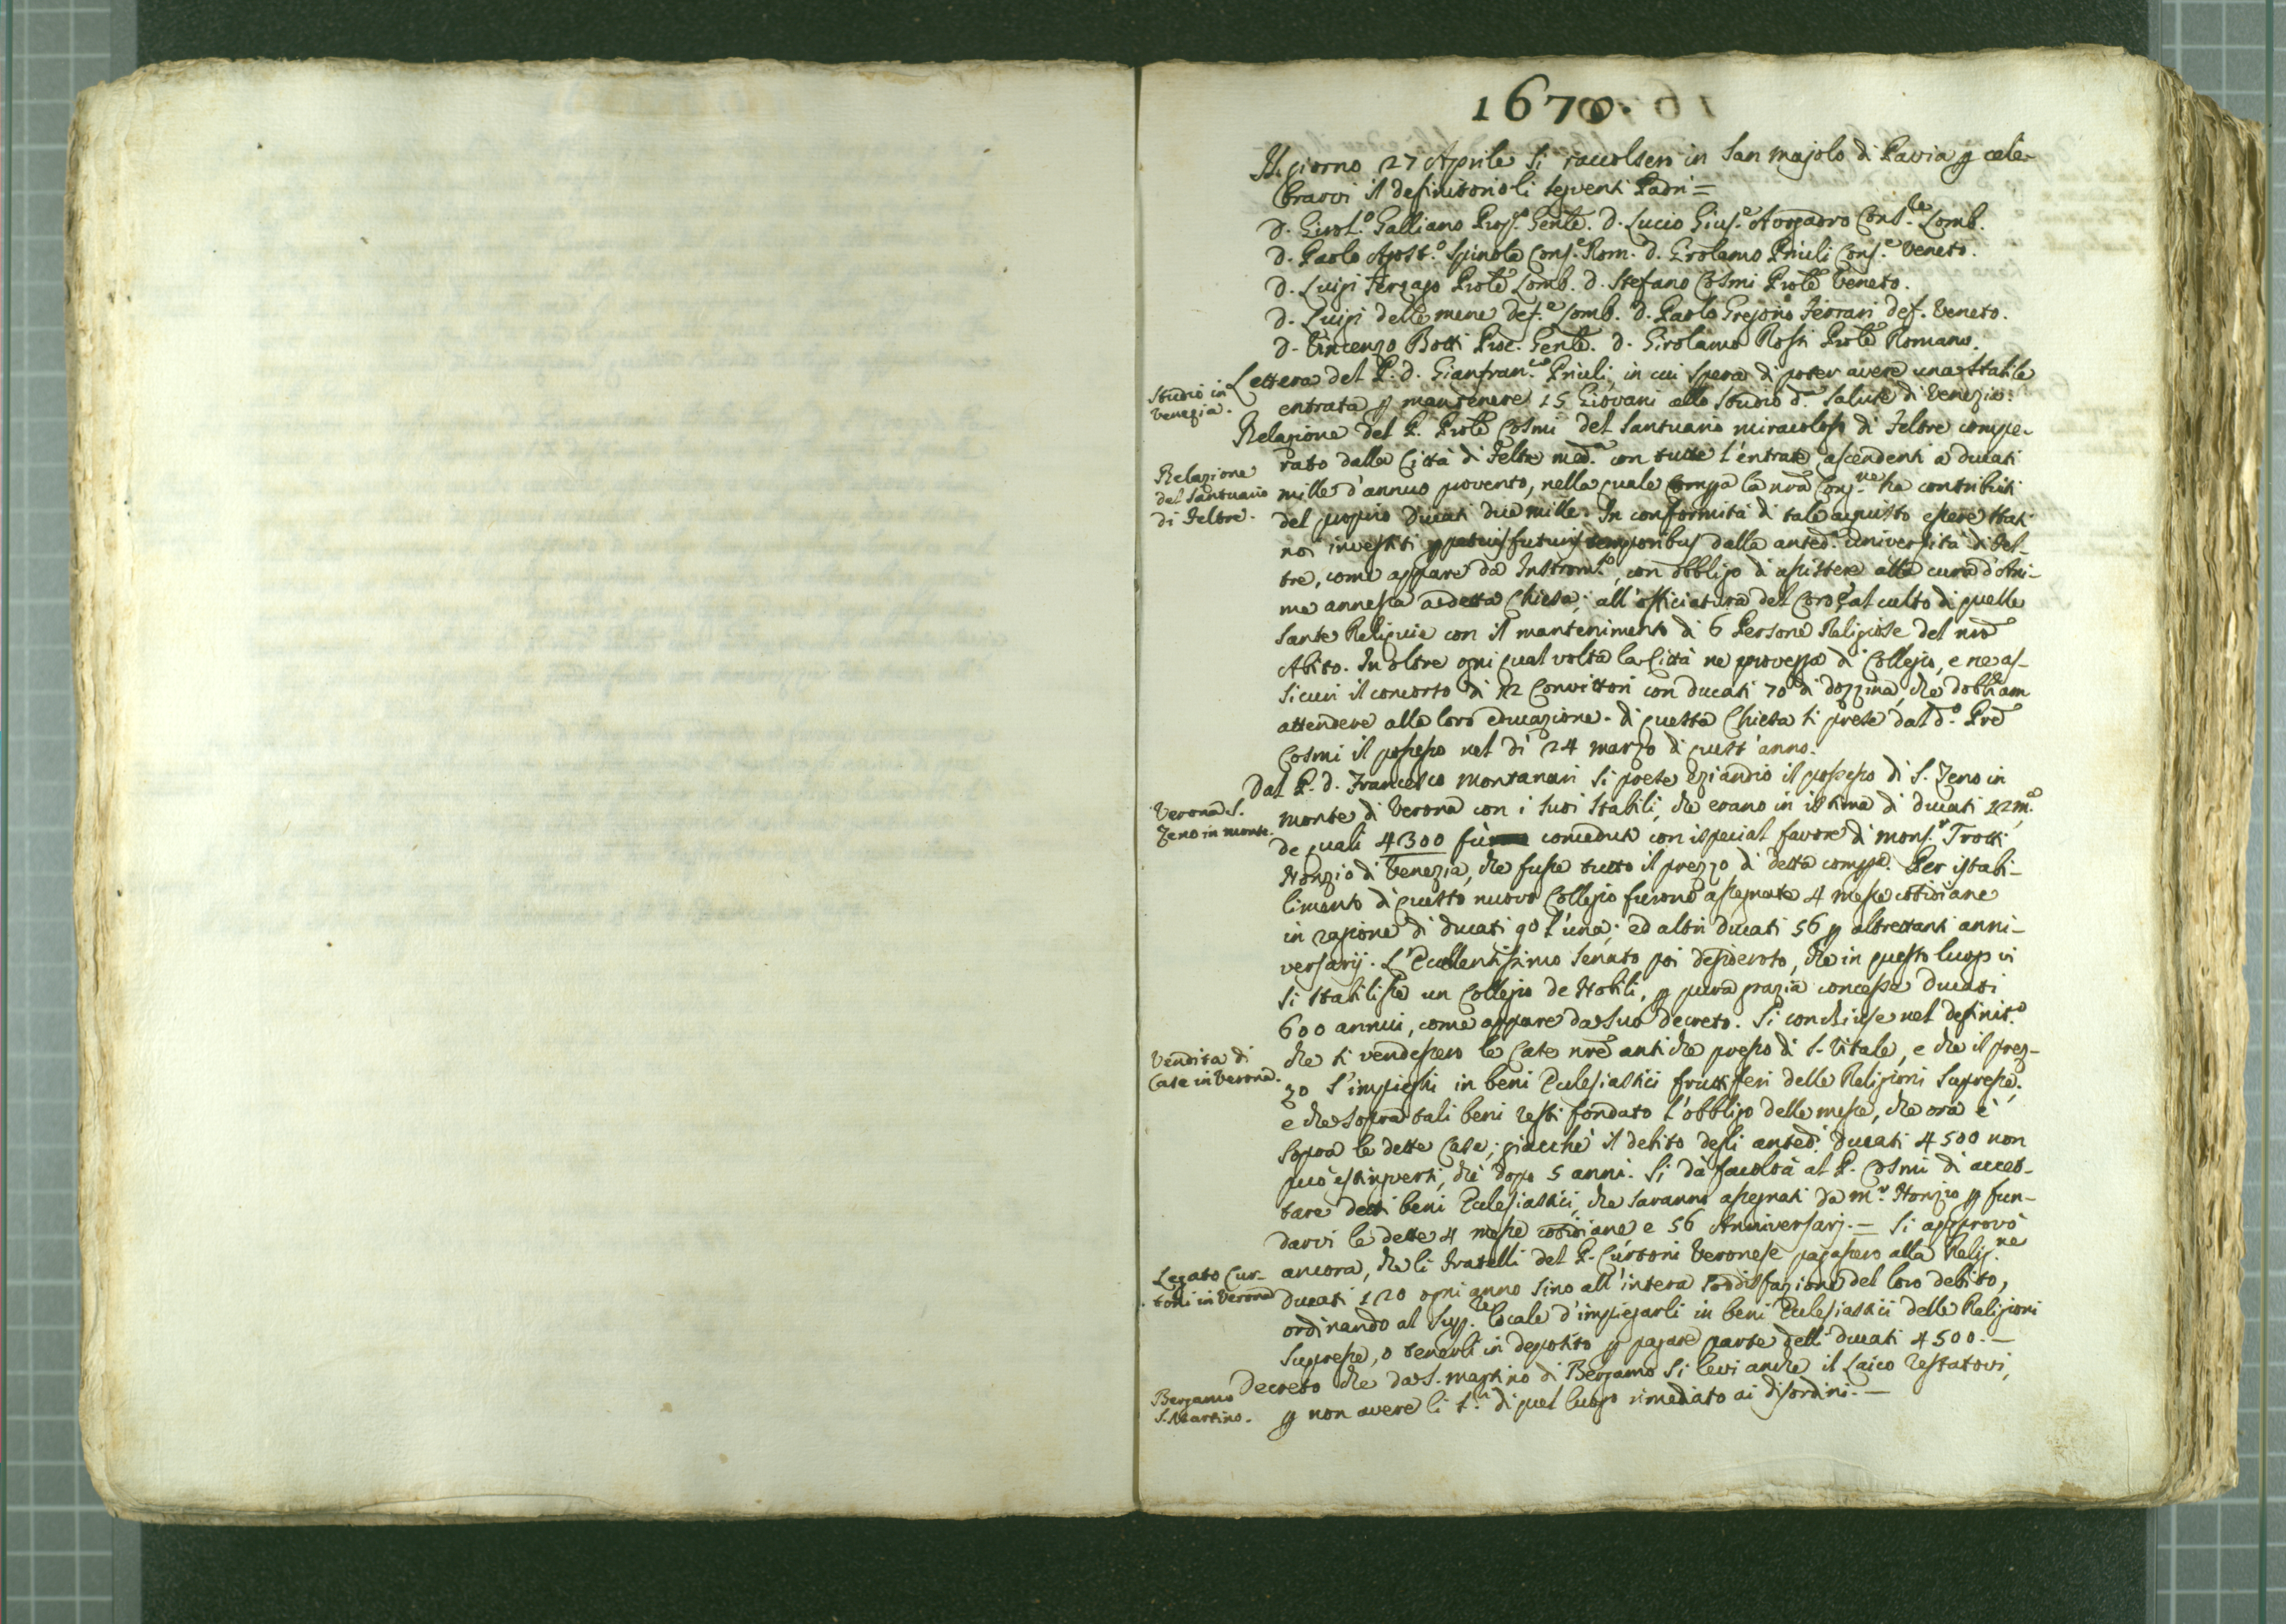 1670.
Il giorno 27 Aprile si raccolsero in San Majolo di Pavia p cele-
brarvi il definitorio li seguenti Padri =
D. Girol.º Galliano Prep.º Genle. D. Lucio Gius.e Avogadro Cons.le Lomb.
D. Paolo Apost.º Spinola Cons.e Rom. D. Girolamo Priuli Cons.e Veneto.
D. Luigi Terzago Prole Lomb. D. Stefano Cosmi Prole Veneto.
D. Luigi delle mene def.e Lomb. D. Paolo Gregorio Ferrari def. Veneto.
D. Vincenzo Botti Proc. Genle. D. Girolamo Rossi Prole Romano.
Studio in
Venezia.
Lettera del P. D. Gianfran.co Priuli, in cui spera di poter avere una stabile
entrata p mantenere 15 Giovani allo studio d.a Salute di Venezia.
Relazione
del Santuario
di Feltre.
Relazione del P. Prole Cosmi del Santuario miracoloso di Feltre compe-
rato dalla Città di Feltre med.a con tutte l'entrate ascendenti a ducati
mille d'annuo provento, nella quale compa la nra Cong.ne ha contribuiti
del proprio Ducati due mille. In conformità di tale acquisto essere stati
noi investiti futuris temporibus dalla anted.a università di Fel-
tre, come appare da Instrom.to, con obbligo di assistere alla cura d'Ani-
me annessa a detta Chiesa; all'officiatura del Coro, e al culto di quelle
Sante Reliquie con il mantenimento di 6 Persone Religiose del nro
Abito. In oltre ogni qual volta la Città ne provegga di Collegio, e ne as-
sicuri il concorso di 12 Convittori con ducati 70 di dozzina, che dobbiam
attendere alla loro educazione. di questa Chiesa si prese dal d.º Pre
Cosmi il possesso nel dì 24 marzo di quest'anno.
Verona S.
Zeno in monte.
Dal P. D. Francesco Montanari si prese eziandio il possesso di S. Zeno in
monte di Verona con i suoi stabili, che erano in istima di ducati 12m.a,
de quali 4300 fu conceduti con ispecial favore di Mons.r Trotti
Nonzio di Venezia, che fusse tutto il prezzo di detta compa. Per istabi-
limento di questo nuovo Collegio furono assegnate 4 messe cotidiane
in ragione di ducati 90 l'una; ed altri ducati 56 p altrettanti anni-
versarij. L'Eccellentissimo Senato poi desideroso, che in questo luogo vi
si stabilisse un Collegio de Nobili, p pura grazia concesse Ducati
600 annui, come appare da suo decreto. Si conchiuse nel definit.º
Vendita di
Case in Verona.
che si vendessero le Case nre antiche presso di S. Vitale, e che il prez-
zo s'impieghi in beni Eclesiastici fruttiferi delle Religioni Supresse;
e che sopra tali beni resti fondato l'obbligo delle messe, che ora è
sopra le dette Case; giacché il debito degli anted.i Ducati 4500 non
può estinguersi, che dopo 5 anni. Si dà facoltà al P. Cosmi di accet-
tare detti beni Eclesiastici, che saranno assegnati da M.r Nonzio p fun-
darvi le dette 4 messe cotidiane e 56 Anniversarj. = Si approvò
Legato Cur-
toni in Verona
ancora, che li Fratelli del P. Curtoni Veronese pagassero alla Relig.ne
ducati 120 ogni anno sino all'intera soddisfazione del loro debito,
ordinando al Sup.re locale d'impiegarli in beni Eclesiastici delle Religioni
Supresse, o tenerli in deposito p pagare parte delli ducati 4500. —
Bergamo
S. Martino.
Decreto che da S. Martino di Bergamo si levi anche il Laico restatovi,
p non avere li S.ri di quel luogo rimediato ai disordini. —